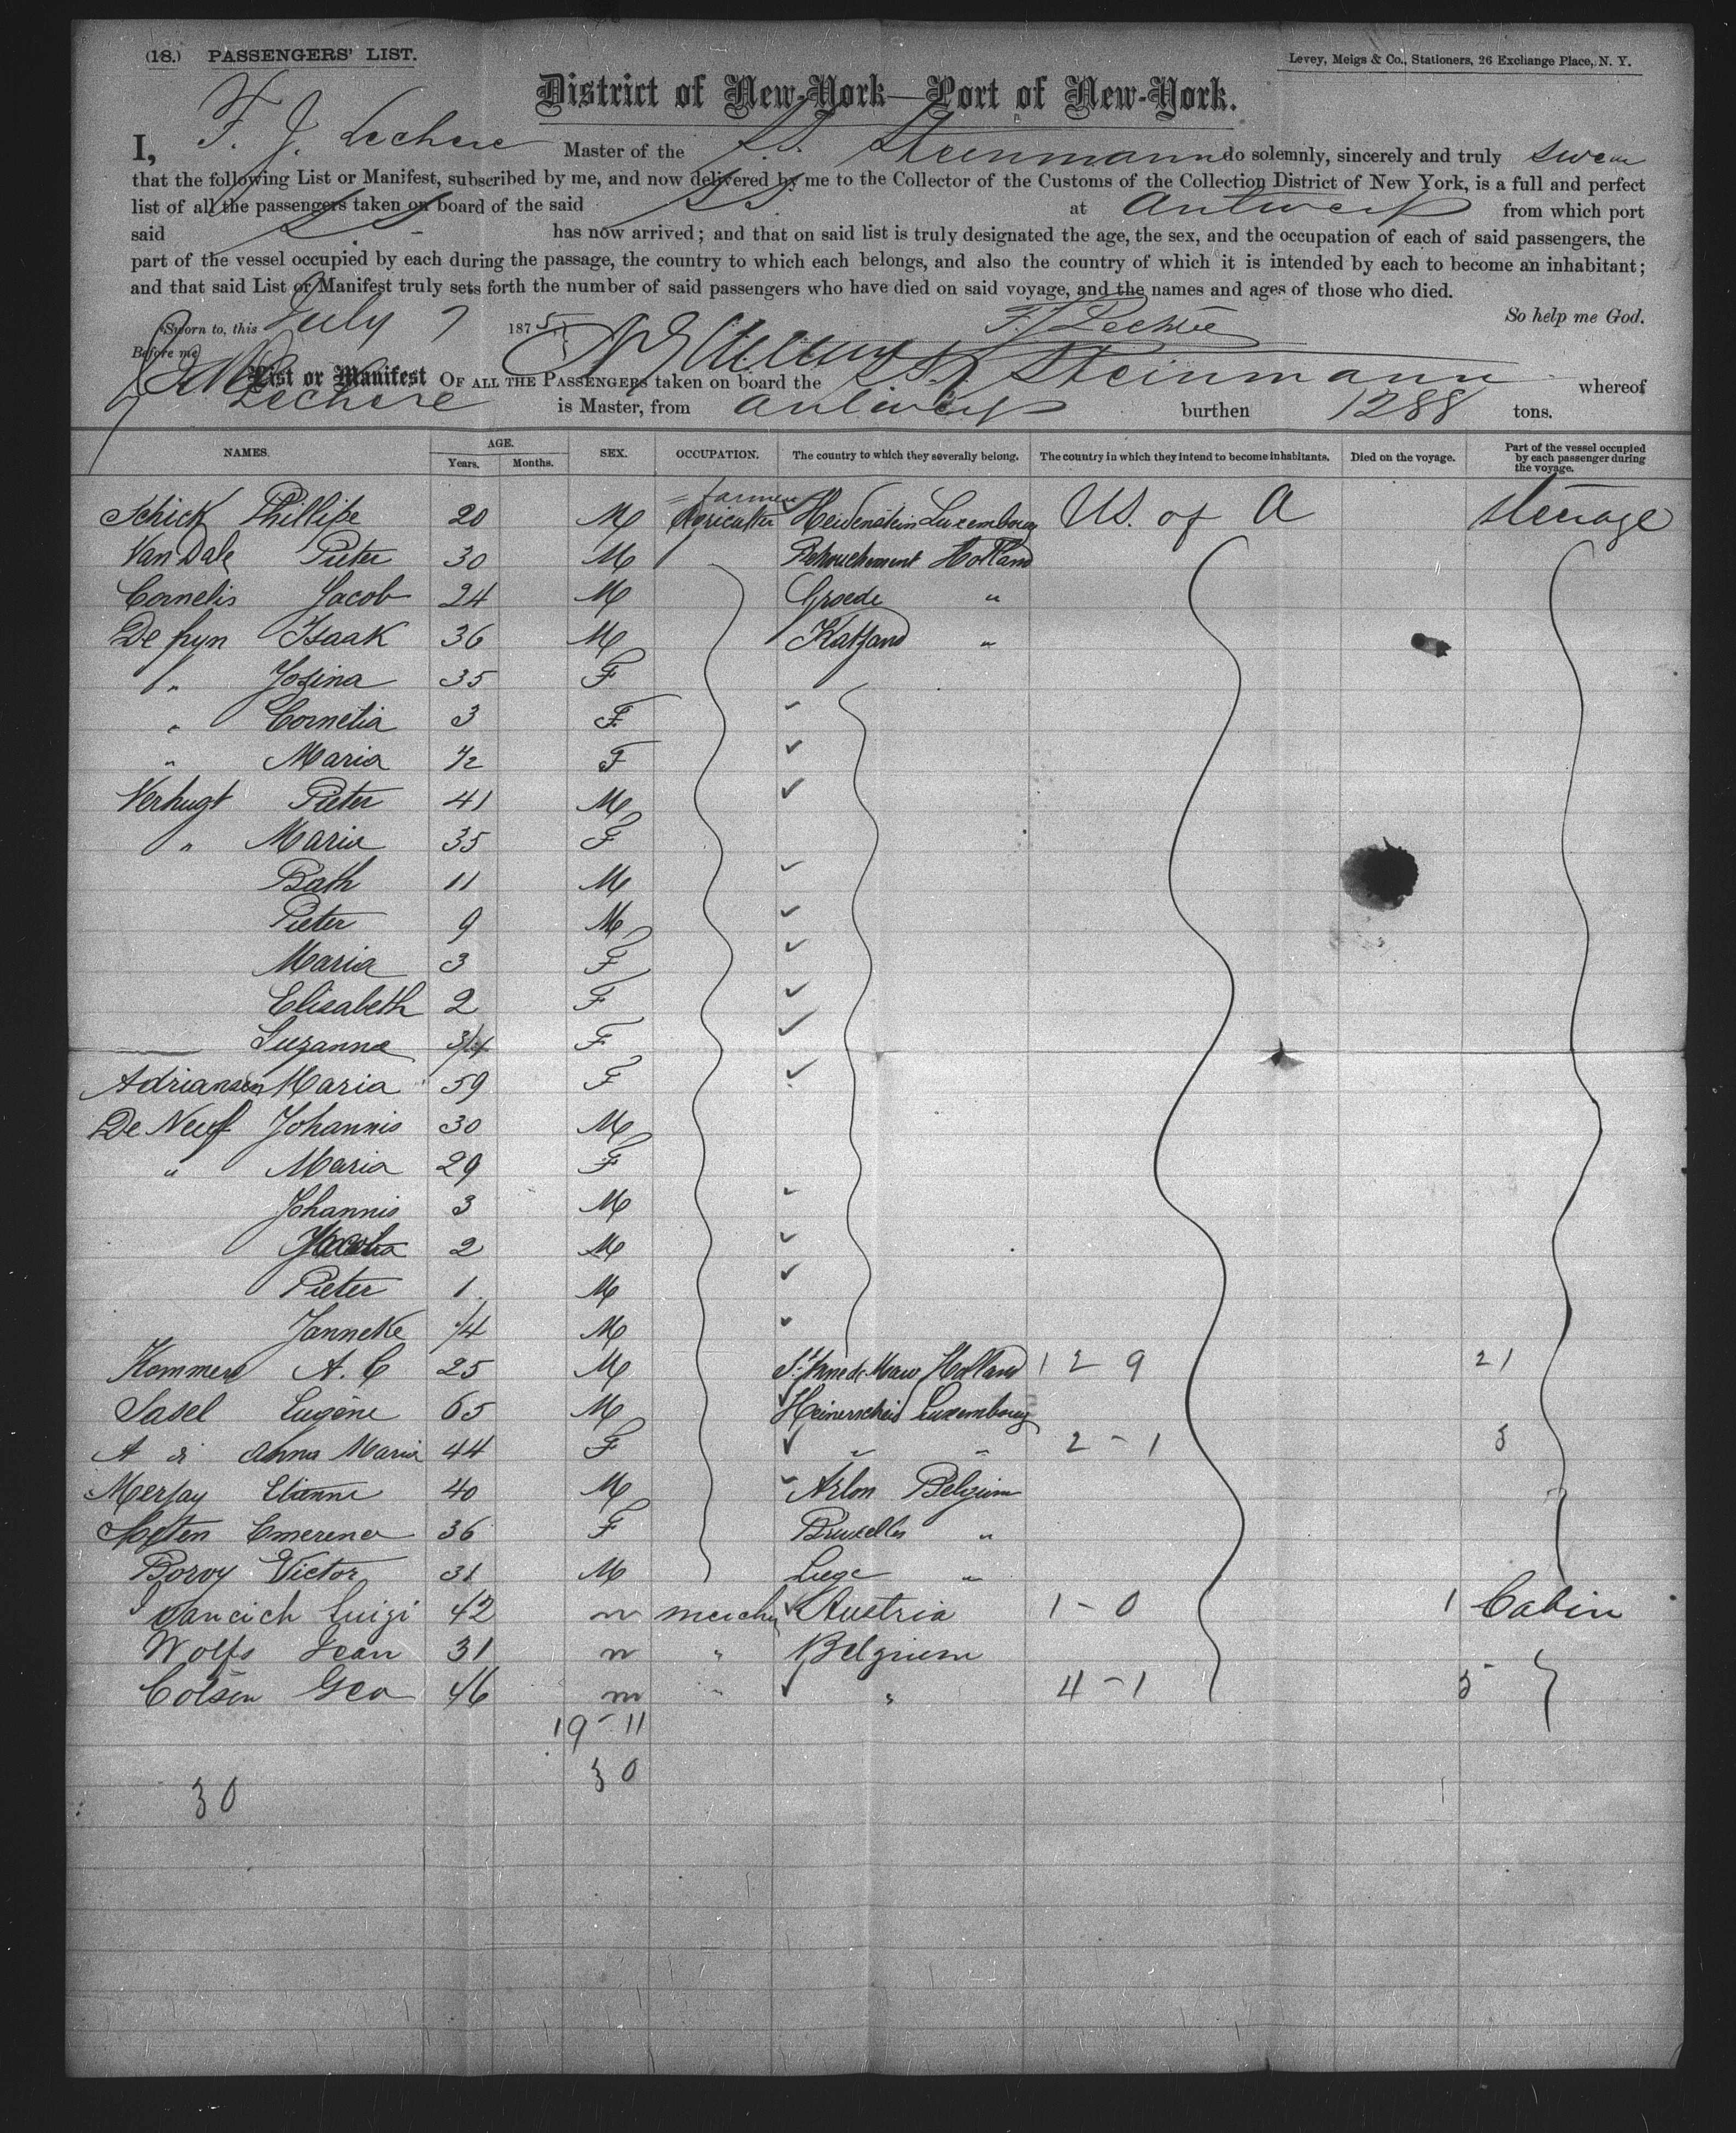 (18.) PASSENGERS' LIST.
Levey, Meigs & Co., Stationers, 26 Exchange Place, N. Y.
District of New-York—Port of New-York.
I, F. J. Lechere Master of the S.S. Steinmann do solemnly, sincerely and truly swear
that the following List or Manifest, subscribed by me, and now delivered by me to the Collector of the Customs of the Collection District of New York, is a full and perfect
list of all the passengers taken on board of the said S.S. at Antwerp from which port
said S.S. has now arrived; and that on said list is truly designated the age, the sex, and the occupation of each of said passengers, the
part of the vessel occupied by each during the passage, the country to which each belongs, and also the country of which it is intended by each to become an inhabitant;
and that said List or Manifest truly sets forth the number of said passengers who have died on said voyage, and the names and ages of those who died.
So help me God.
Sworn to, this July 7 1875
Before me
List or Manifest OF ALL THE PASSENGERS taken on board the S.S. Steinmann whereof
Lechere is Master, from Antwerp burthen 1288 tons.
NAMES. AGE. Years. Months. SEX. OCCUPATION. The country to which they severally belong. The country in which they intend to become inhabitants. Died on the voyage. Part of the vessel occupied by each passenger during the voyage.
= farmer
Schick Phillipe 20 M Heidenstein Luxembourg US. of A Steerage
Van Dale Pieter 30 M Holland
Cornelis Jacob 24 M Groede "
Isaak 36 M Katzand "
" Josina 35 F
" Cornelia 3 F
" Maria 1/2 F
Verhugt Pieter 41 M
" Maria 35 F
Bath 11 M
Pieter 9 M
Maria 3 F
Elisabeth 2 F
Suzanna 3/4 F
Adriansen Maria 59 F
De Neuf Johannis 30 M
" Maria 29 F
Johannis 3 M
2 M
Pieter 1 M
Janneke 1/4 M
A. C 25 M Holland 12 9 21
Sasel Eugène 65 M Heinerscheid Luxembourg
Anna Maria 44 F " " 2 - 1 3
Merjay Etienne 40 M Arlon Belgium
36 F Bruxelles "
Borvy Victor 31 M Liege "
Luigi 42 m Austria 1 - 0 1 Cabin
Wolfs Jean 31 m " Belgium
Colsen Geo 46 m " " 4 - 1 5
19 - 11
30
30